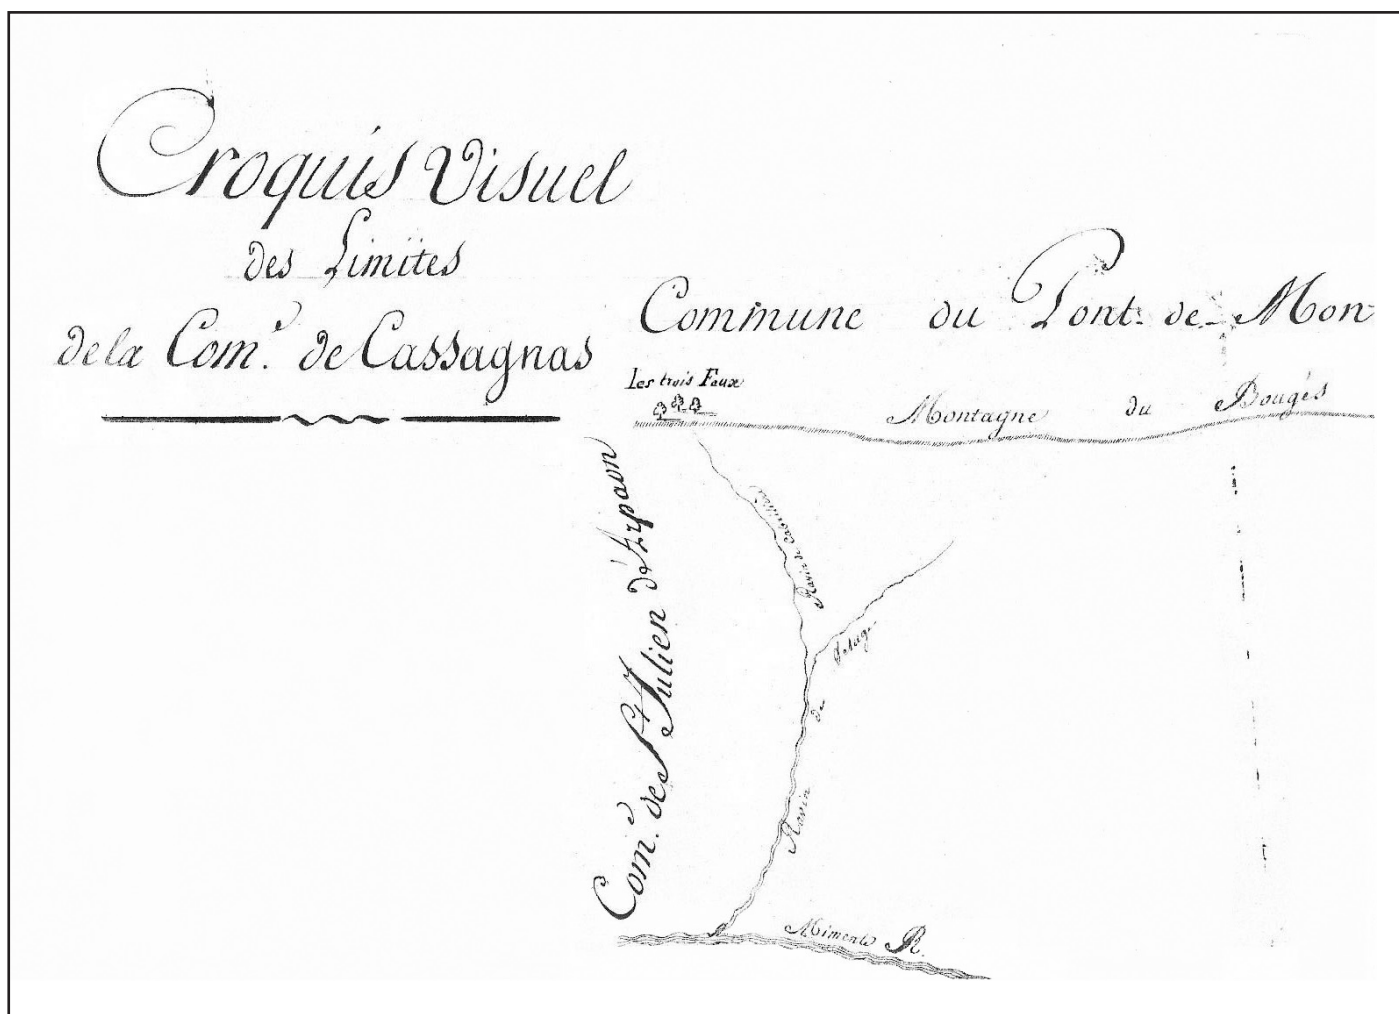 Croquis Visuel
des Limites
de la Com.e de Cassagnas
Commune du Pont-de-Mon
Les trois Faux
Montagne du Bougés
Com.e de St Julien d'Arpaon
Ravin de
Ravin de
Mimente R.